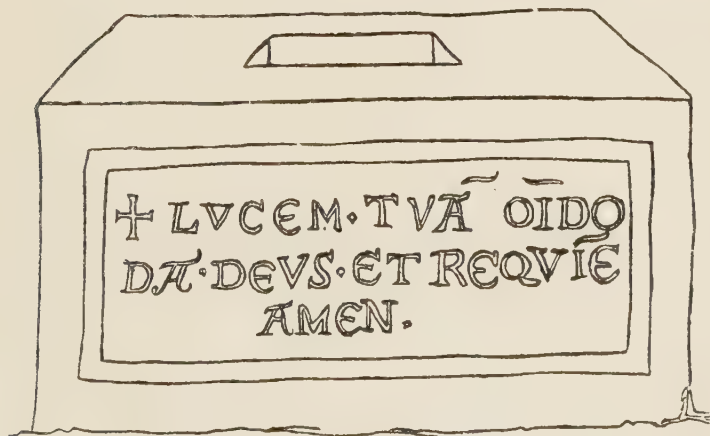 ✠ LVCEM · TVA͂ OI͞DO
DA · DEVS · ET REQVIE͂
AMEN ·